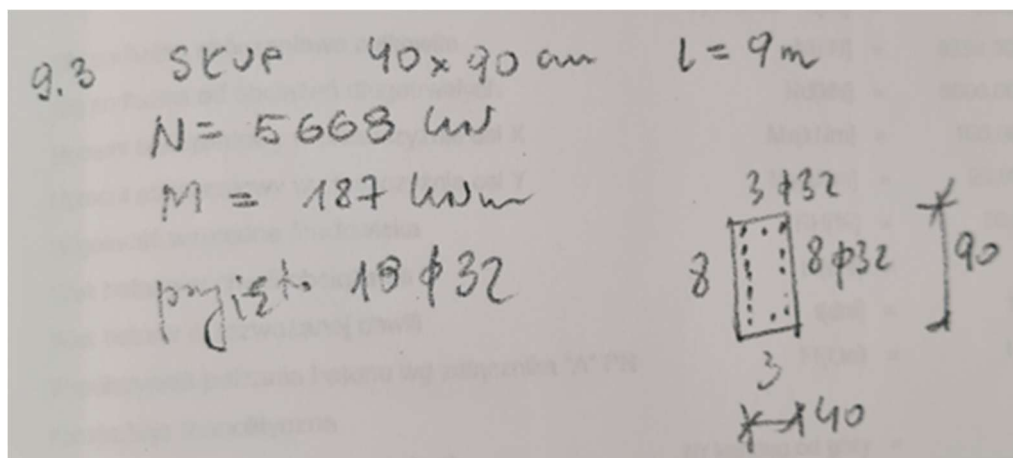 9.3 SŁUP 40 x 90 cm l = 9m
N = 5668 kN
M = 187 kNm
przyjęto 18 ϕ 32
3 ϕ32
8 8ϕ32 90
3
40